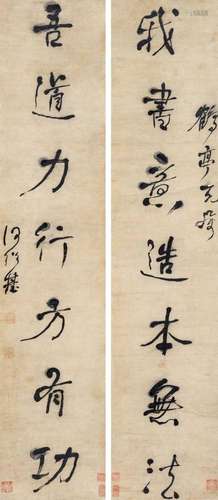 鶴亭
我書意造本無法
吾道力行方有功
何紹基